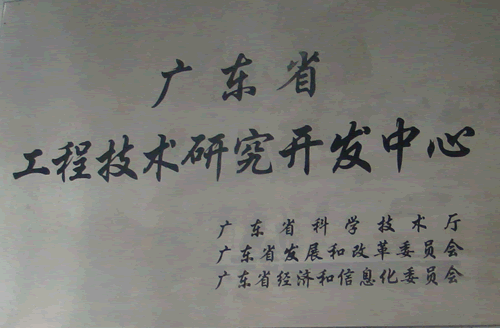 广东省
工程技术研究开发中心
广东省科学技术厅
广东省发展和改革委员会
广东省经济和信息化委员会